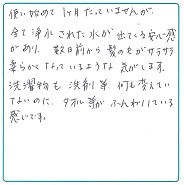 使い始めて1ヶ月たっていませんが、
全て浄水された水が出てくる安心感
があり、数日前から髪の毛がサラサラ
柔らかくなっているような気がします。
洗濯物も洗剤等、何も変えてい
ないのに、タオル等がふんわりしている
感じです。